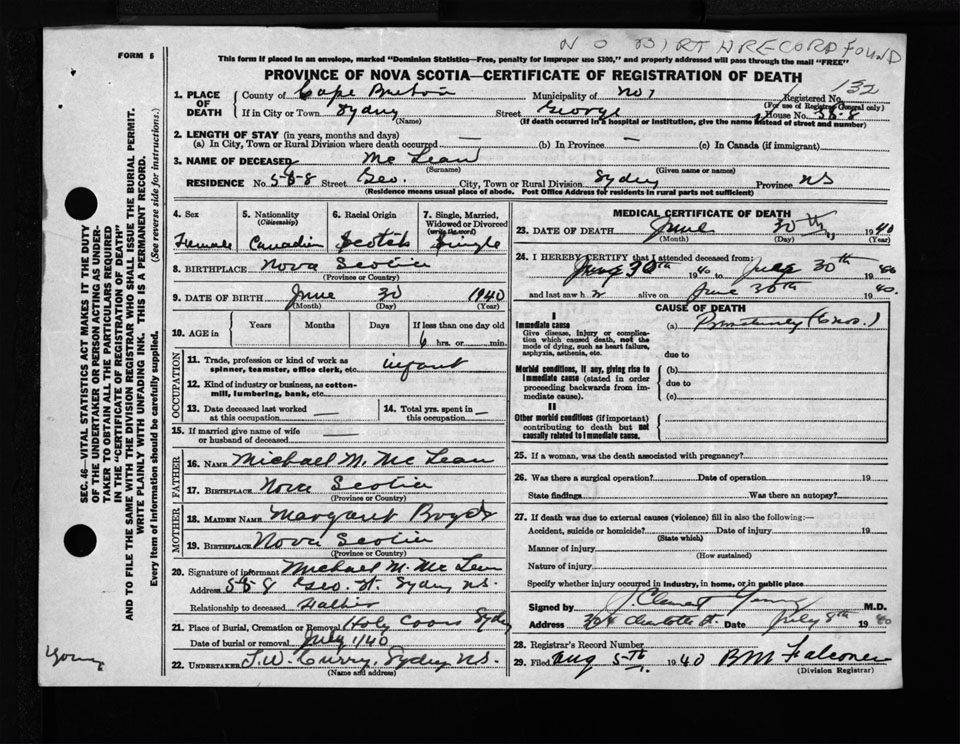 NO BIRTH RECORD FOUND
FORM 5
This form if placed in an envelope, marked "Dominion Statistics—Free, penalty for improper use $300," and properly addressed will pass through the mail "FREE"
PROVINCE OF NOVA SCOTIA—CERTIFICATE OF REGISTRATION OF DEATH
132
1. PLACE OF DEATH County of Cape Breton Municipality of No 1 Registered No.
(For use of Registrar General only)
If in City or Town Sydney (Name) Street George House No. 58-8
(If death occurred in a hospital or institution, give the name instead of street and number)
2. LENGTH OF STAY (in years, months and days)
(a) In City, Town or Rural Division where death occurred — (b) In Province — (c) In Canada (if immigrant)
3. NAME OF DECEASED Mc Lean
(Surname) (Given name or names)
RESIDENCE No. 5-8-8 Street Geo. City, Town or Rural Division Sydney Province NS
(Residence means usual place of abode. Post Office Address for residents in rural parts not sufficient)
4. Sex 5. Nationality (Citizenship) 6. Racial Origin 7. Single, Married, Widowed or Divorced (write the word)
Female Canadian Scotch Single
8. BIRTHPLACE Nova Scotia
(Province or Country)
9. DATE OF BIRTH June 30 1940
(Month) (Day) (Year)
10. AGE in Years Months Days If less than one day old
6 hrs. or min.
OCCUPATION
11. Trade, profession or kind of work as spinner, teamster, office clerk, etc. infant
12. Kind of industry or business, as cotton-mill, lumbering, bank, etc.
13. Date deceased last worked at this occupation — 14. Total yrs. spent in this occupation —
15. If married give name of wife or husband of deceased —
FATHER
16. NAME Michael M. Mc Lean
17. BIRTHPLACE Nova Scotia
(Province or Country)
MOTHER
18. MAIDEN NAME Margaret Boyd
19. BIRTHPLACE Nova Scotia
(Province or Country)
20. Signature of informant Michael M. Mc Lean
Address 5-8-8 Geo. St. Sydney N.S.
Relationship to deceased Father
21. Place of Burial, Cremation or Removal Holy Cross Sydney
Date of burial or removal July 1/40
22. UNDERTAKER T.W. Curry, Sydney N.S.
(Name and address)
MEDICAL CERTIFICATE OF DEATH
23. DATE OF DEATH June 30th, 1940
(Month) (Day) (Year)
24. I HEREBY CERTIFY that I attended deceased from:
June 30th 1940 to July 30th 1940
and last saw h r alive on June 30th 1940.
CAUSE OF DEATH
I
Immediate cause
Give disease, injury or complication which caused death, not the mode of dying, such as heart failure, asphyxia, asthenia, etc.
(a) Prematurity (6 mos.)
due to
Morbid conditions, if any, giving rise to immediate cause (stated in order proceeding backwards from immediate cause).
(b)
due to
(c)
II
Other morbid conditions (if important) contributing to death but not causally related to immediate cause.
25. If a woman, was the death associated with pregnancy?
26. Was there a surgical operation? Date of operation 19
State findings Was there an autopsy?
27. If death was due to external causes (violence) fill in also the following:—
Accident, suicide or homicide? Date of injury 19
(State which)
Manner of injury
(How sustained)
Nature of injury
Specify whether injury occurred in industry, in home, or in public place
Signed by J. Clement Young M.D.
Address 304 Charlotte St. Date July 8th 1940
28. Registrar's Record Number
29. Filed Aug 5th 1940 B M Falconer
(Division Registrar)
SEC. 46—VITAL STATISTICS ACT MAKES IT THE DUTY
OF THE UNDERTAKER OR PERSON ACTING AS UNDERTAKER TO OBTAIN ALL THE PARTICULARS REQUIRED
IN THE "CERTIFICATE OF REGISTRATION OF DEATH"
AND TO FILE THE SAME WITH THE DIVISION REGISTRAR WHO SHALL ISSUE THE BURIAL PERMIT.
WRITE PLAINLY WITH UNFADING INK. THIS IS A PERMANENT RECORD.
Every item of information should be carefully supplied. (See reverse side for instructions.)
Young